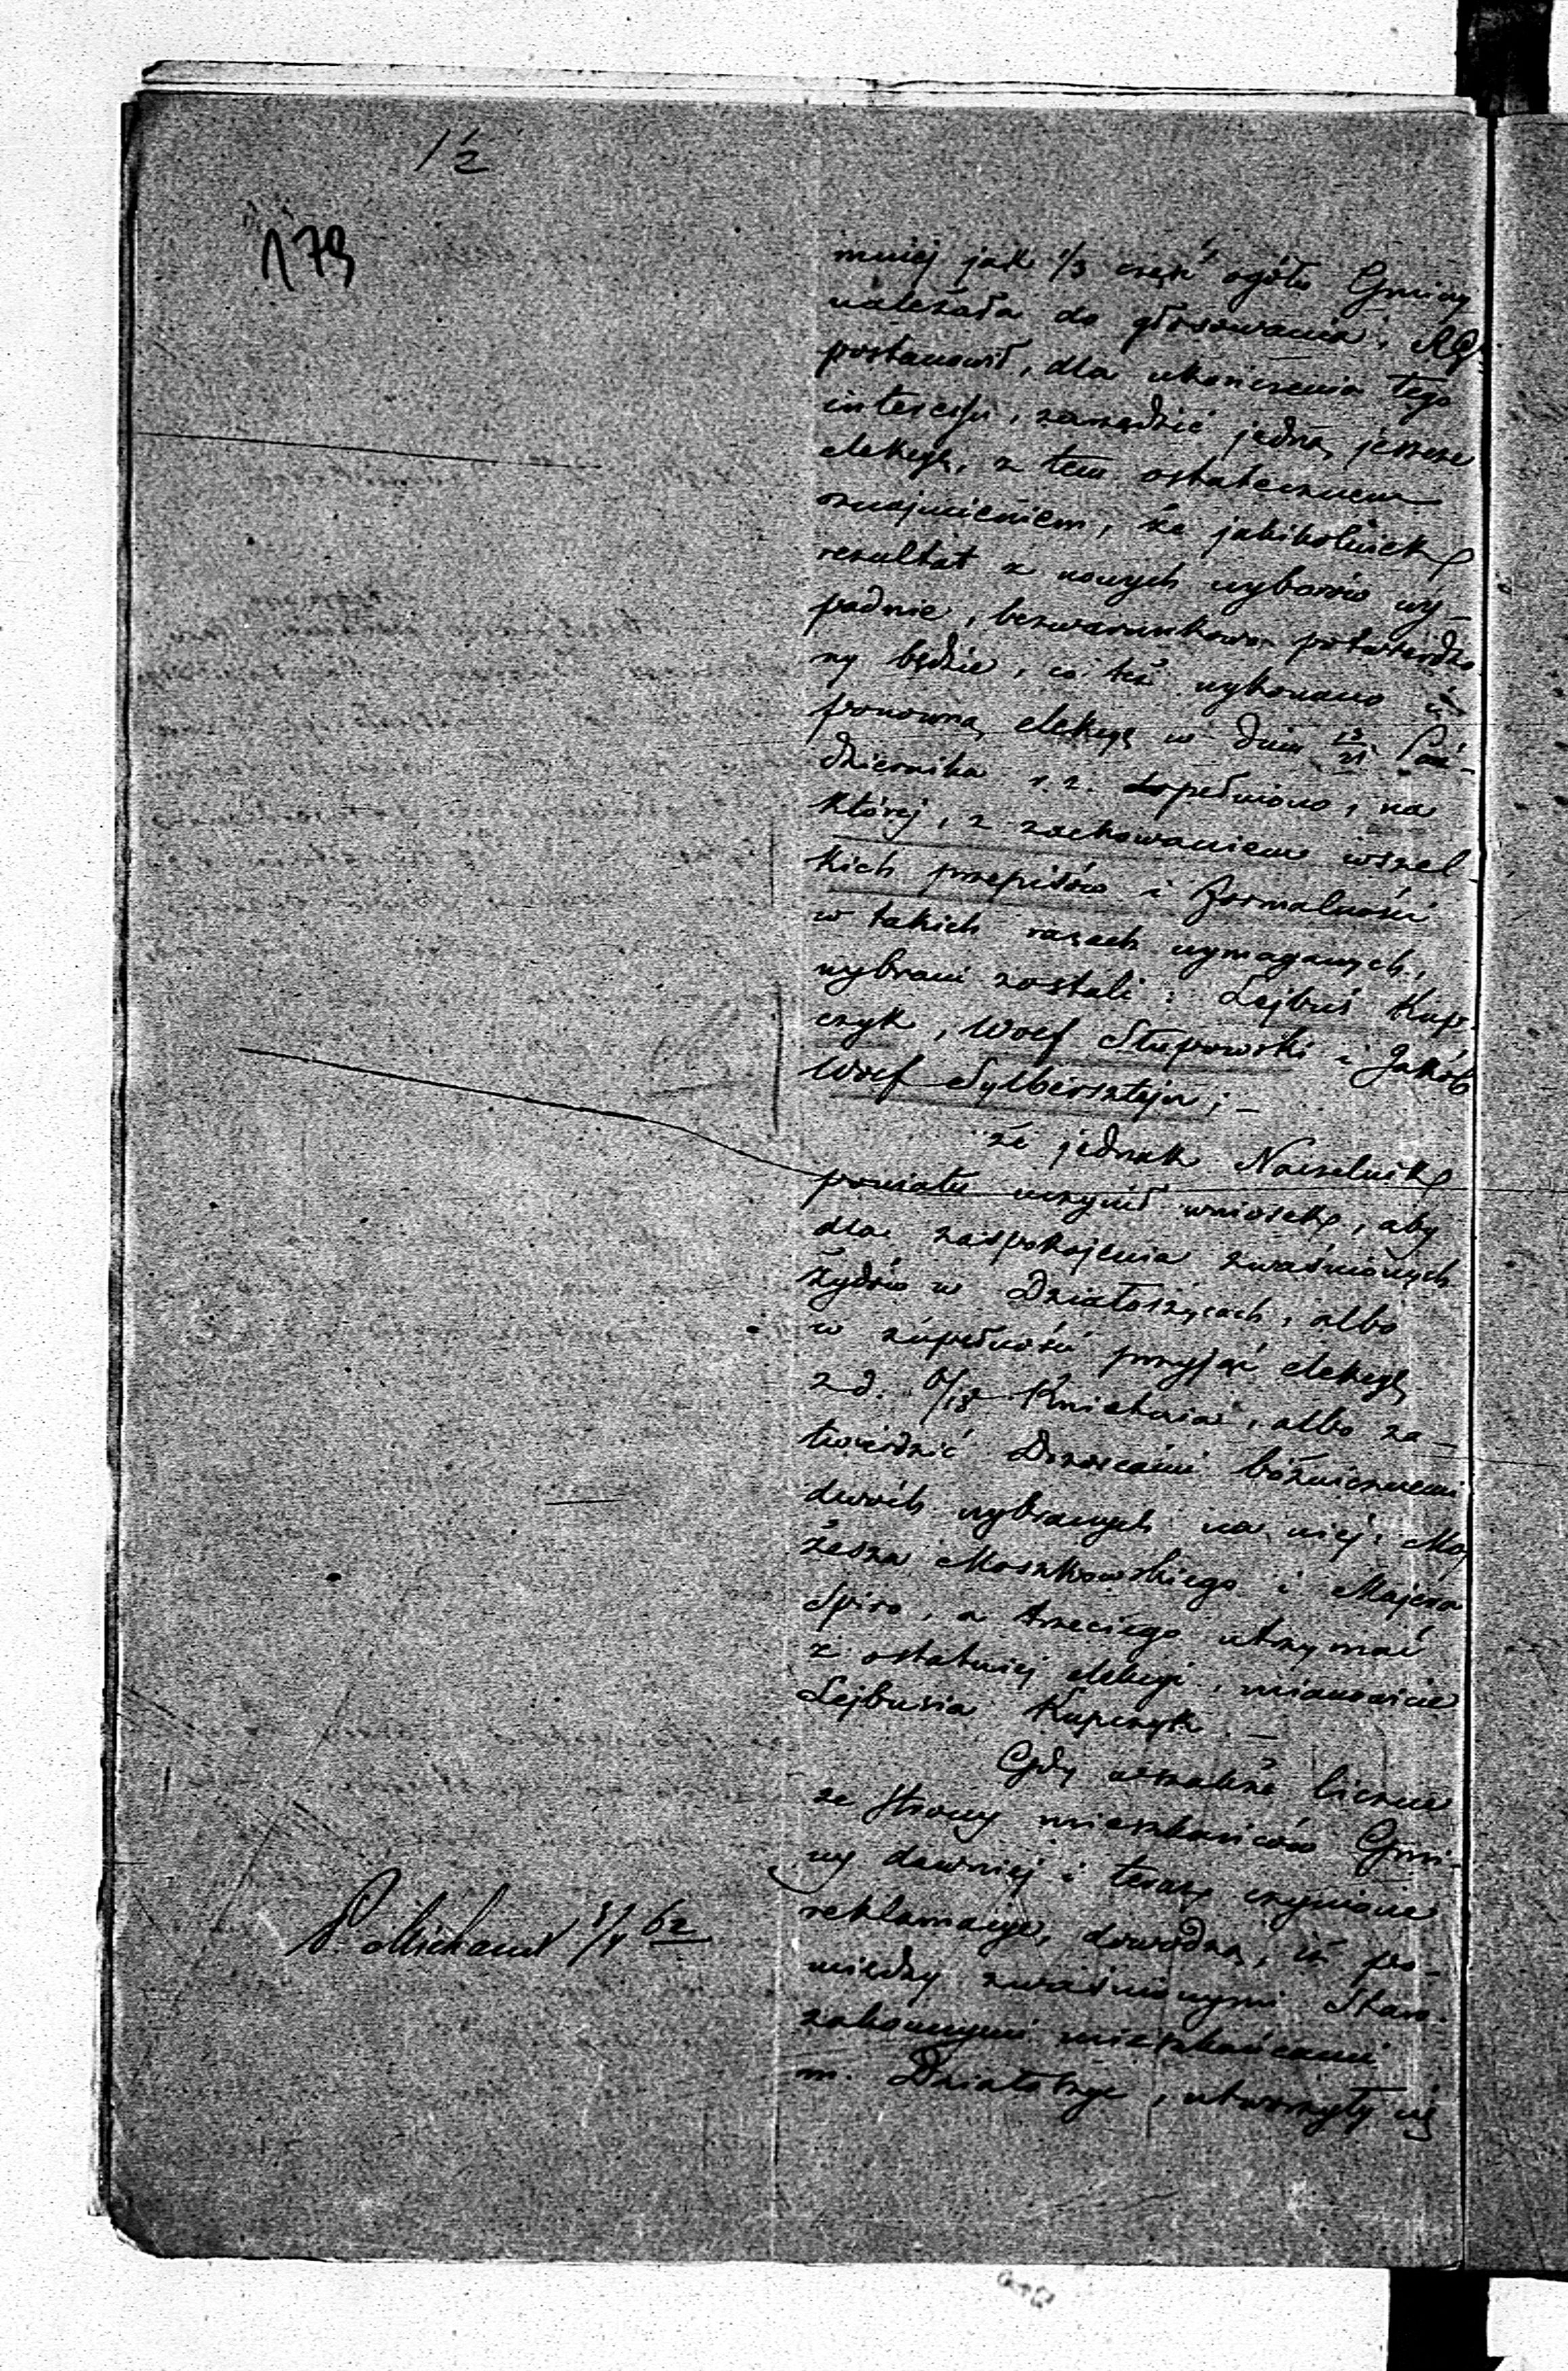 1/2
179
mniej jak 1/3 część ogółu Gminy
należała do głosowania; RG
postanowił, dla ukończenia tego
interesu, zarządzić jedną jeszcze
elekcyę, z tem ostatecznem
oznajmieniem, że jakikolwiek
rezultat z nowych wyborów wy-
padnie, bezwarunkowo potwierdzo
ny będzie, co też wykonano i
ponowną elekcyę w dniu 19/31 Paź-
dziernika r. z. dopełniono, na
której, z zachowaniem wszel-
kich przepisów i formalności
w takich razach wymaganych,
wybrani zostali: Lejbuś Kup-
czyk, Wolf Słupowski i Jakób
Wolf Sylbersztejn; –
że jednak Naczelnik
powiatu uczynił wniosek, aby
dla zaspokojenia zwaśnionych
żydów w Działoszycach, albo
w zupełności przyjąć elekcyę
z d. 6/18 Kwietnia, albo za-
twierdzić Dozorcami bóżnicznemi
dwóch wybranych na niej: Moj
żesza Moszkowskiego i Majera
Spiro, a trzeciego utrzymać
z ostatniej elekcyi, mianowicie
Lejbusia Kupczyk. –
Gdy wszakże liczne
ze strony mieszkańców Gmi-
ny dawniej i teraz czynione
reklamacye, dowodzą, iż po-
między zwaśnionymi Staro-
zakonnymi mieszkańcami
m. Działoszyc, utworzyły się
62